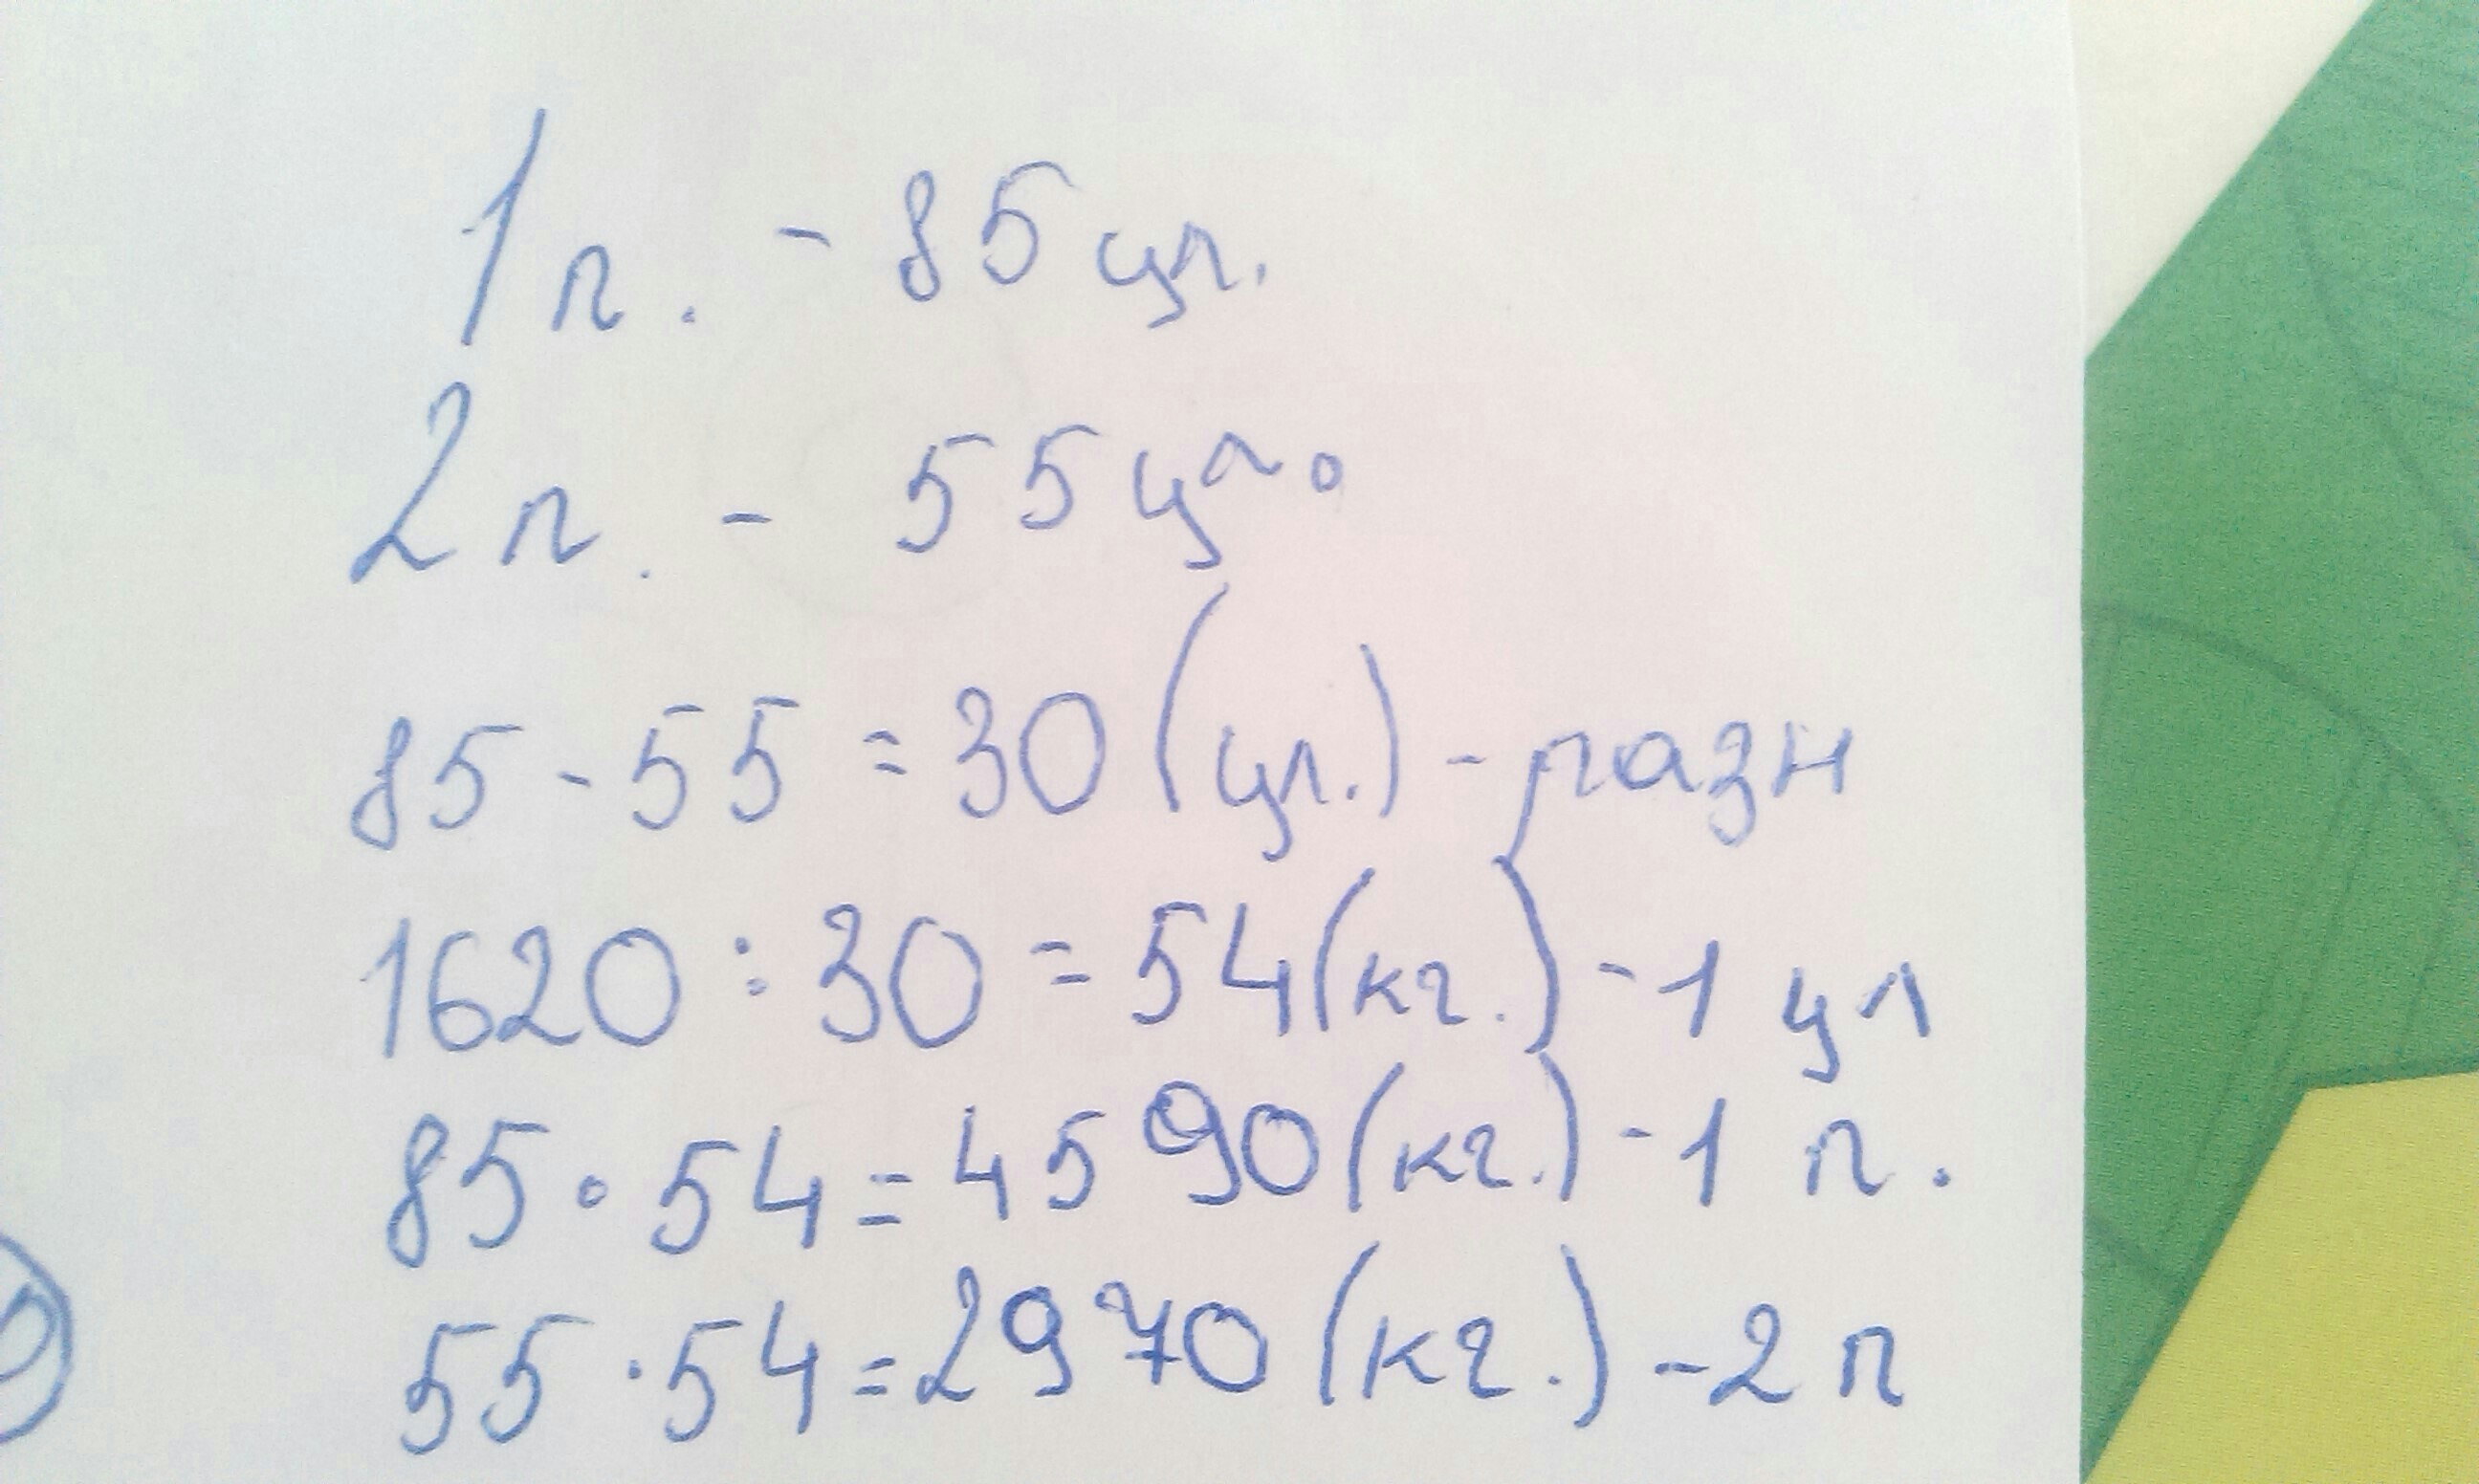 1 п. - 85 ул.
2 п. - 55 ул.
85 - 55 = 30 (ул.) - разн
1620 : 30 = 54 (кг.) - 1 ул
85 · 54 = 4590 (кг.) - 1 п.
55 · 54 = 2970 (кг.) - 2 п